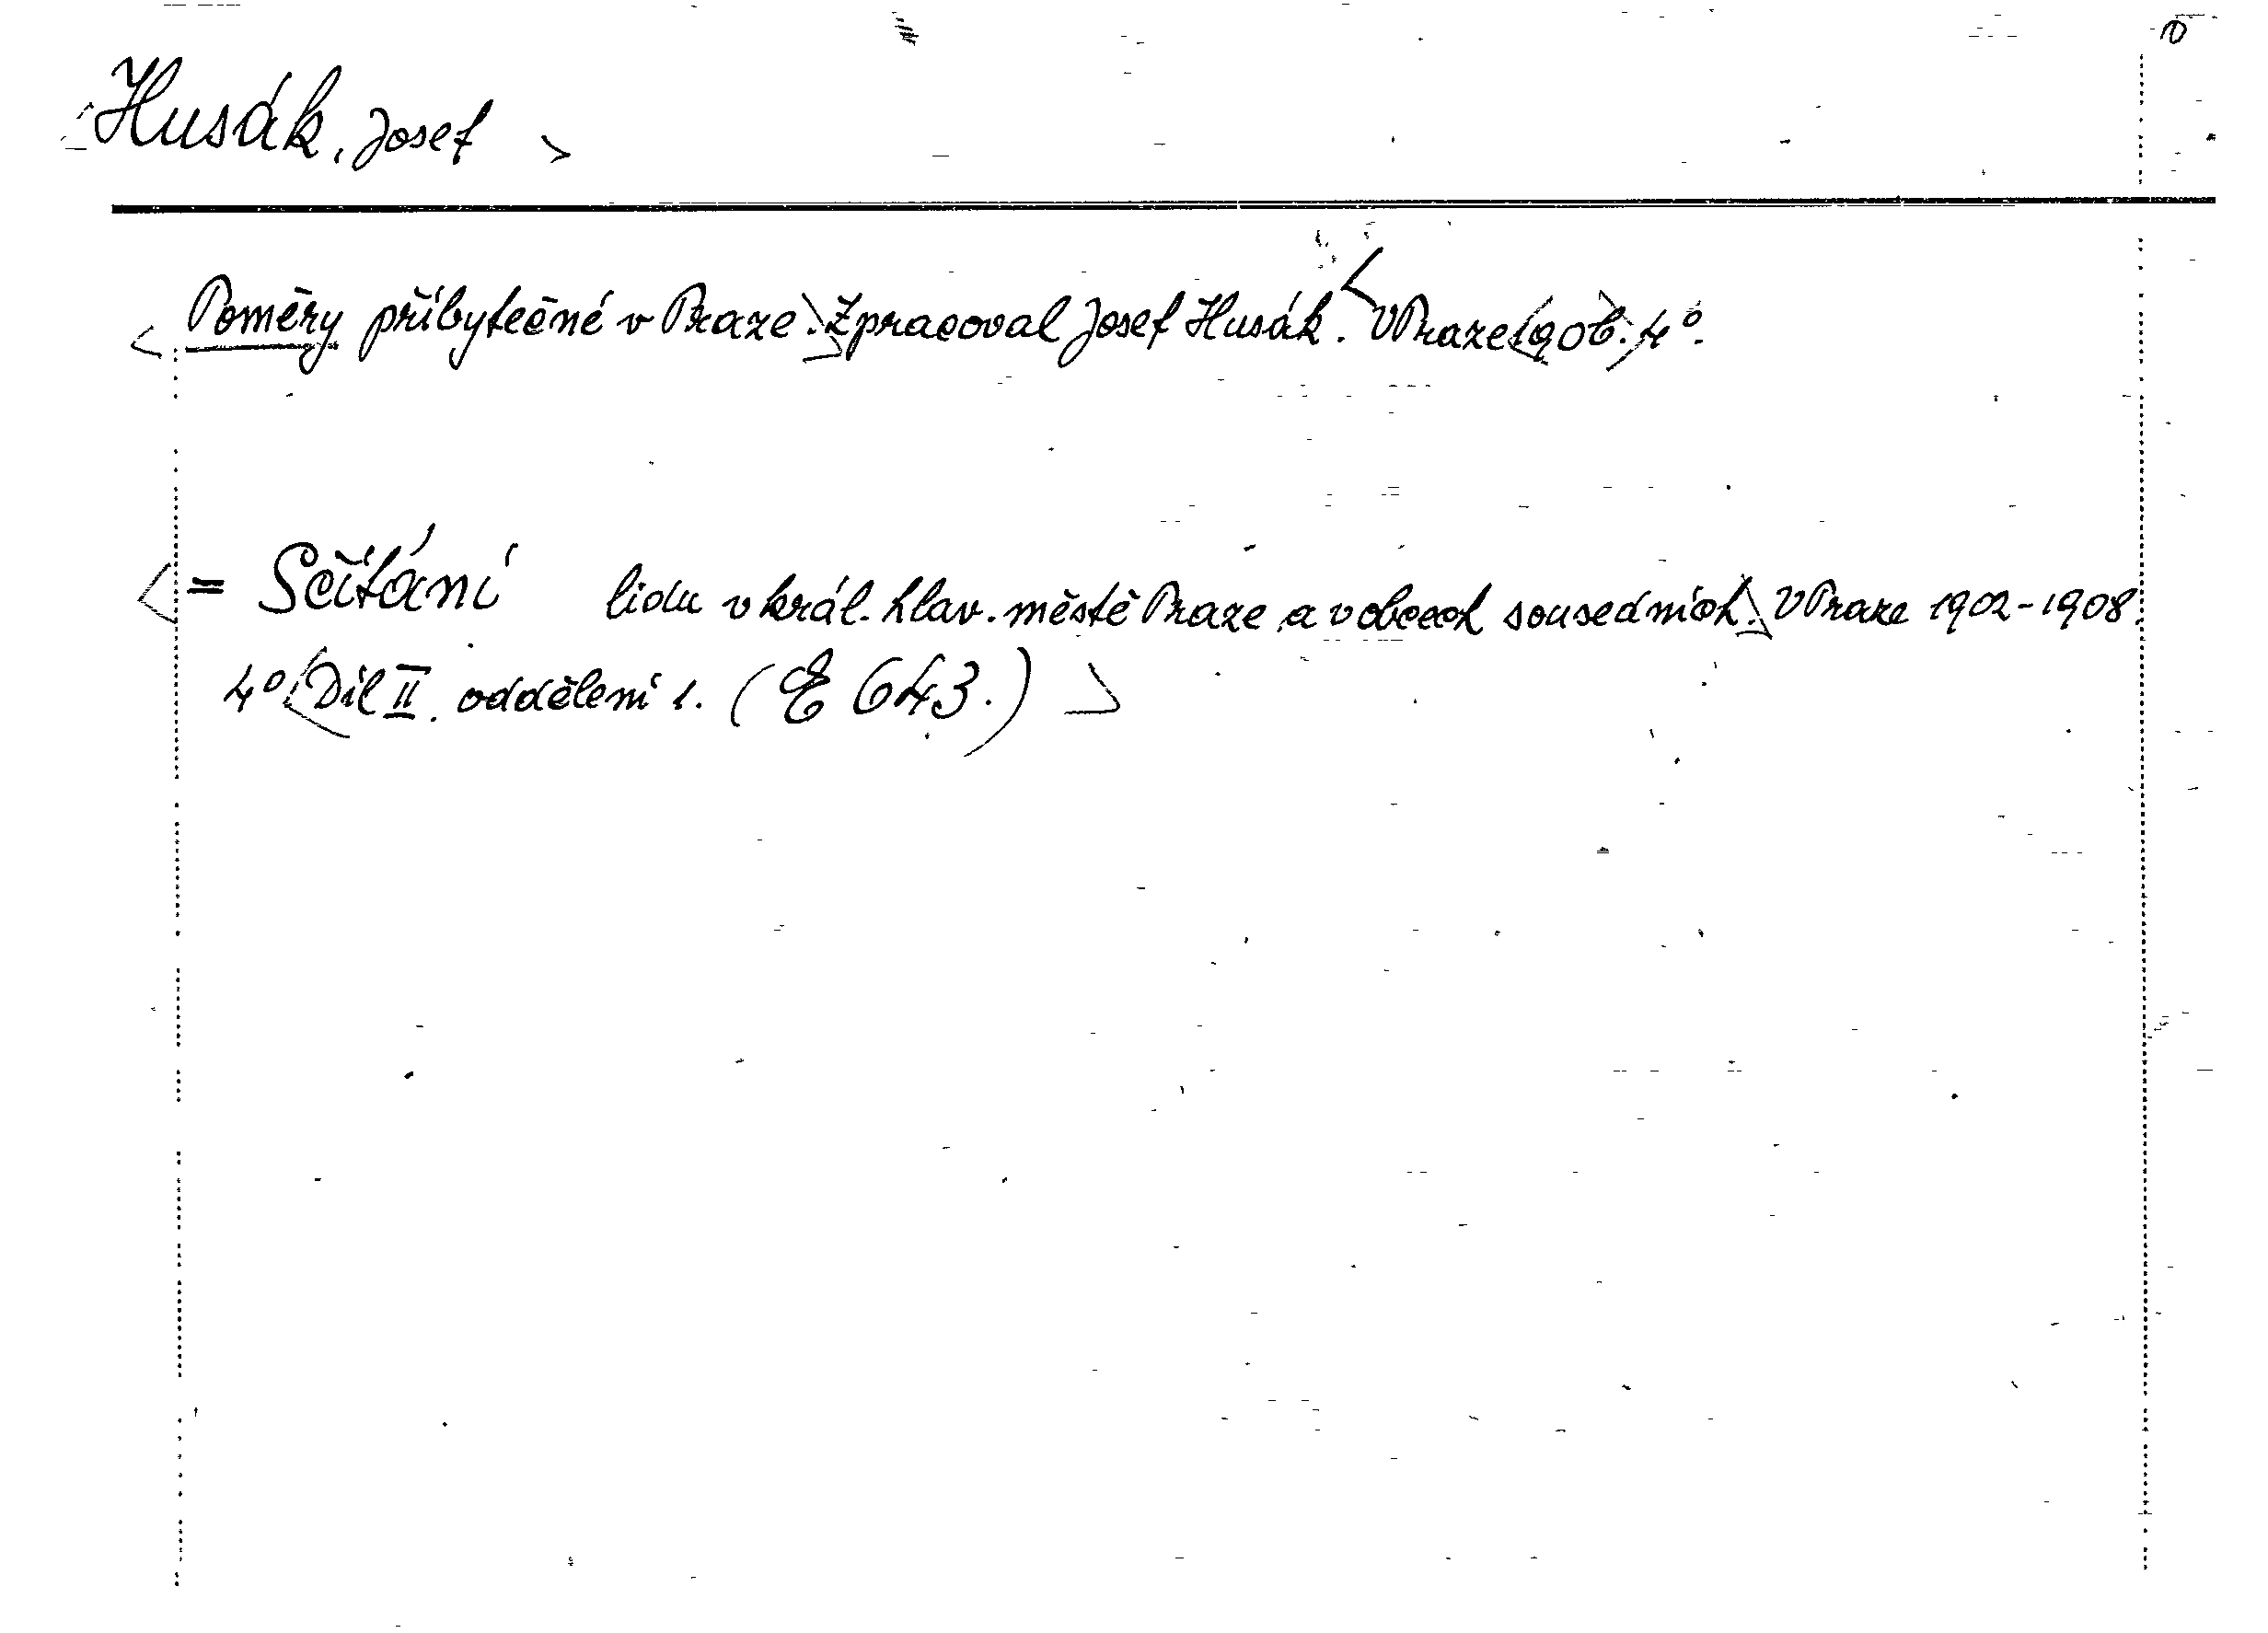 <Husák, Josef >
< Poměry příbytečné v Praze.> Zpracoval Josef Husák. < V Praze <1906.> 4°.
< = Sčítání lidu v král. hlav. městě Praze a v obcech sousedních.> V Praze 1902-1908.
4° <Díl II. oddělení 1. (E 643.) >